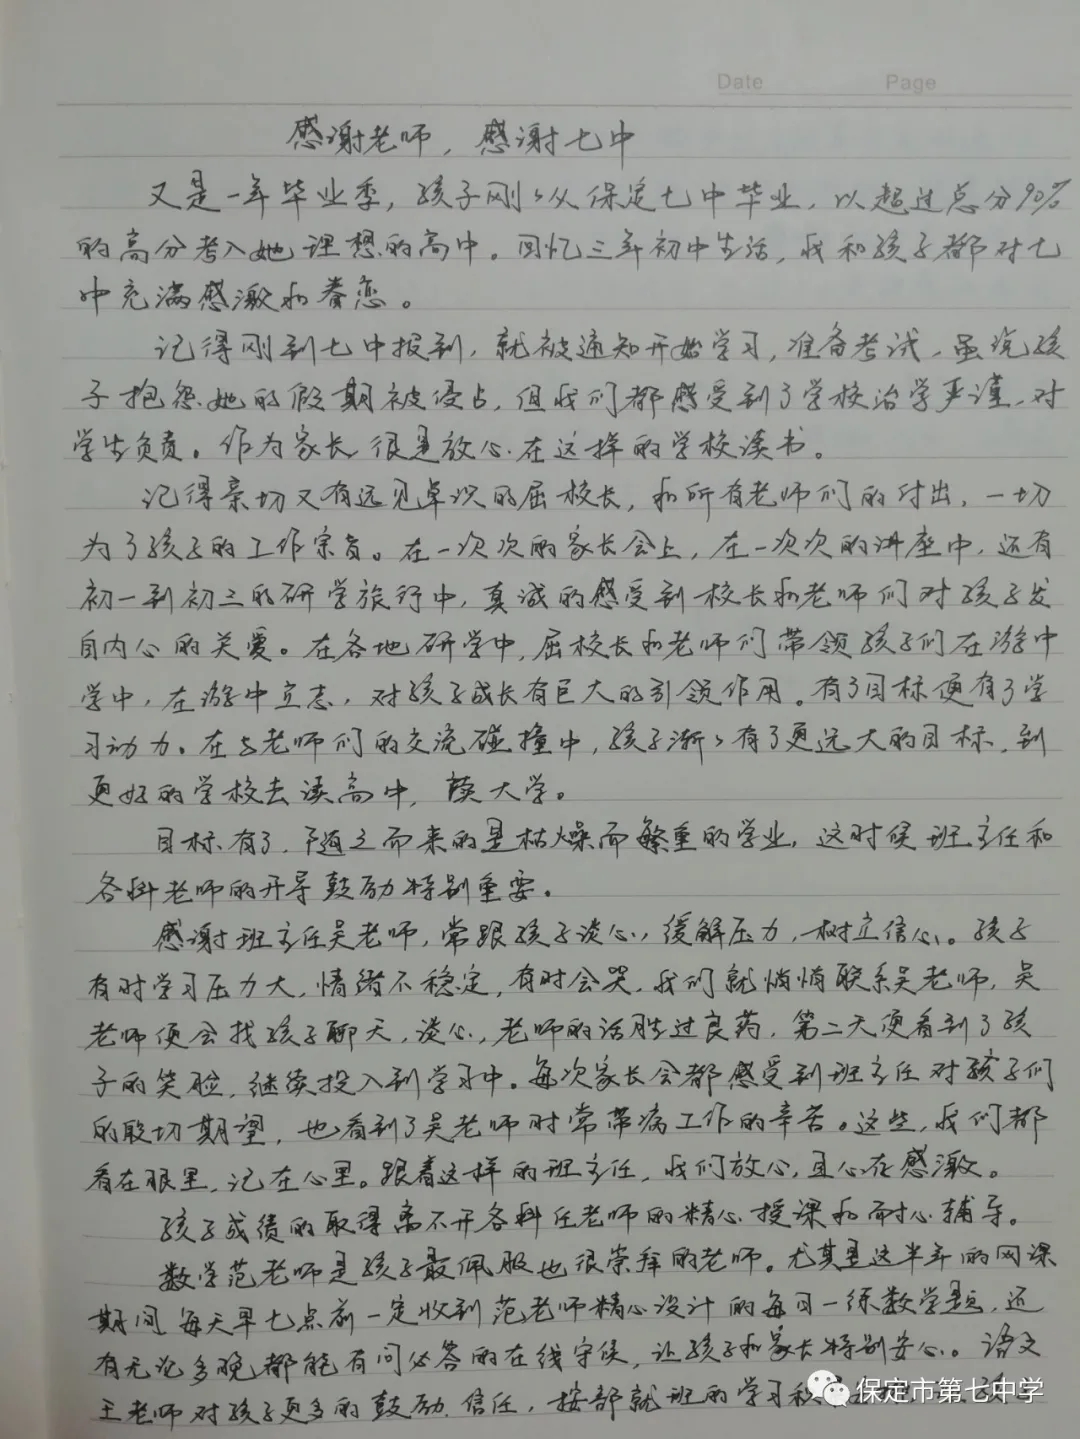 Date Page
感谢老师，感谢七中
又是一年毕业季，孩子刚刚从保定七中毕业，以超过总分90%
的高分考入她理想的高中。回忆三年初中生活，我和孩子都对七
中充满感激和眷恋。
记得刚到七中报到，就被通知开始学习，准备考试，虽说孩
子抱怨她的假期被侵占，但我们都感受到了学校治学严谨，对
学生负责。作为家长很是放心在这样的学校读书。
记得亲切又有远见卓识的屈校长，和所有老师们的付出，一切
为了孩子的工作宗旨。在一次次的家长会上，在一次次的讲座中，还有
初一到初三的研学旅行中，真诚的感受到校长和老师们对孩子发
自内心的关爱。在各地研学中，屈校长和老师们带领孩子们在游中
学中，在游中立志，对孩子成长有巨大的引领作用。有了目标便有了学
习动力。在与老师们的交流碰撞中，孩子渐渐有了更远大的目标，到
更好的学校去读高中，读大学。
目标有了，随之而来的是枯燥而繁重的学业，这时候班主任和
各科老师的开导鼓励特别重要。
感谢班主任吴老师，常跟孩子谈心，缓解压力，树立信心。孩子
有时学习压力大，情绪不稳定，有时会哭，我们就悄悄联系吴老师，吴
老师便会找孩子聊天，谈心，老师的话胜过良药，第二天便看到了孩
子的笑脸，继续投入到学习中。每次家长会都感受到班主任对孩子们
的殷切期望，也看到了吴老师时常带病工作的辛苦。这些，我们都
看在眼里，记在心里。跟着这样的班主任，我们放心，且心存感激。
孩子成绩的取得离不开各科任老师的精心授课和耐心辅导。
数学范老师是孩子最佩服也很崇拜的老师。尤其是这半年的网课
期间，每天早七点前一定收到范老师精心设计的每日一练数学题，还
有无论多晚都能有问必答的在线守候，让孩子和家长特别安心。语文
王老师对孩子更多的鼓励、信任，按部就班的学习积
保定市第七中学